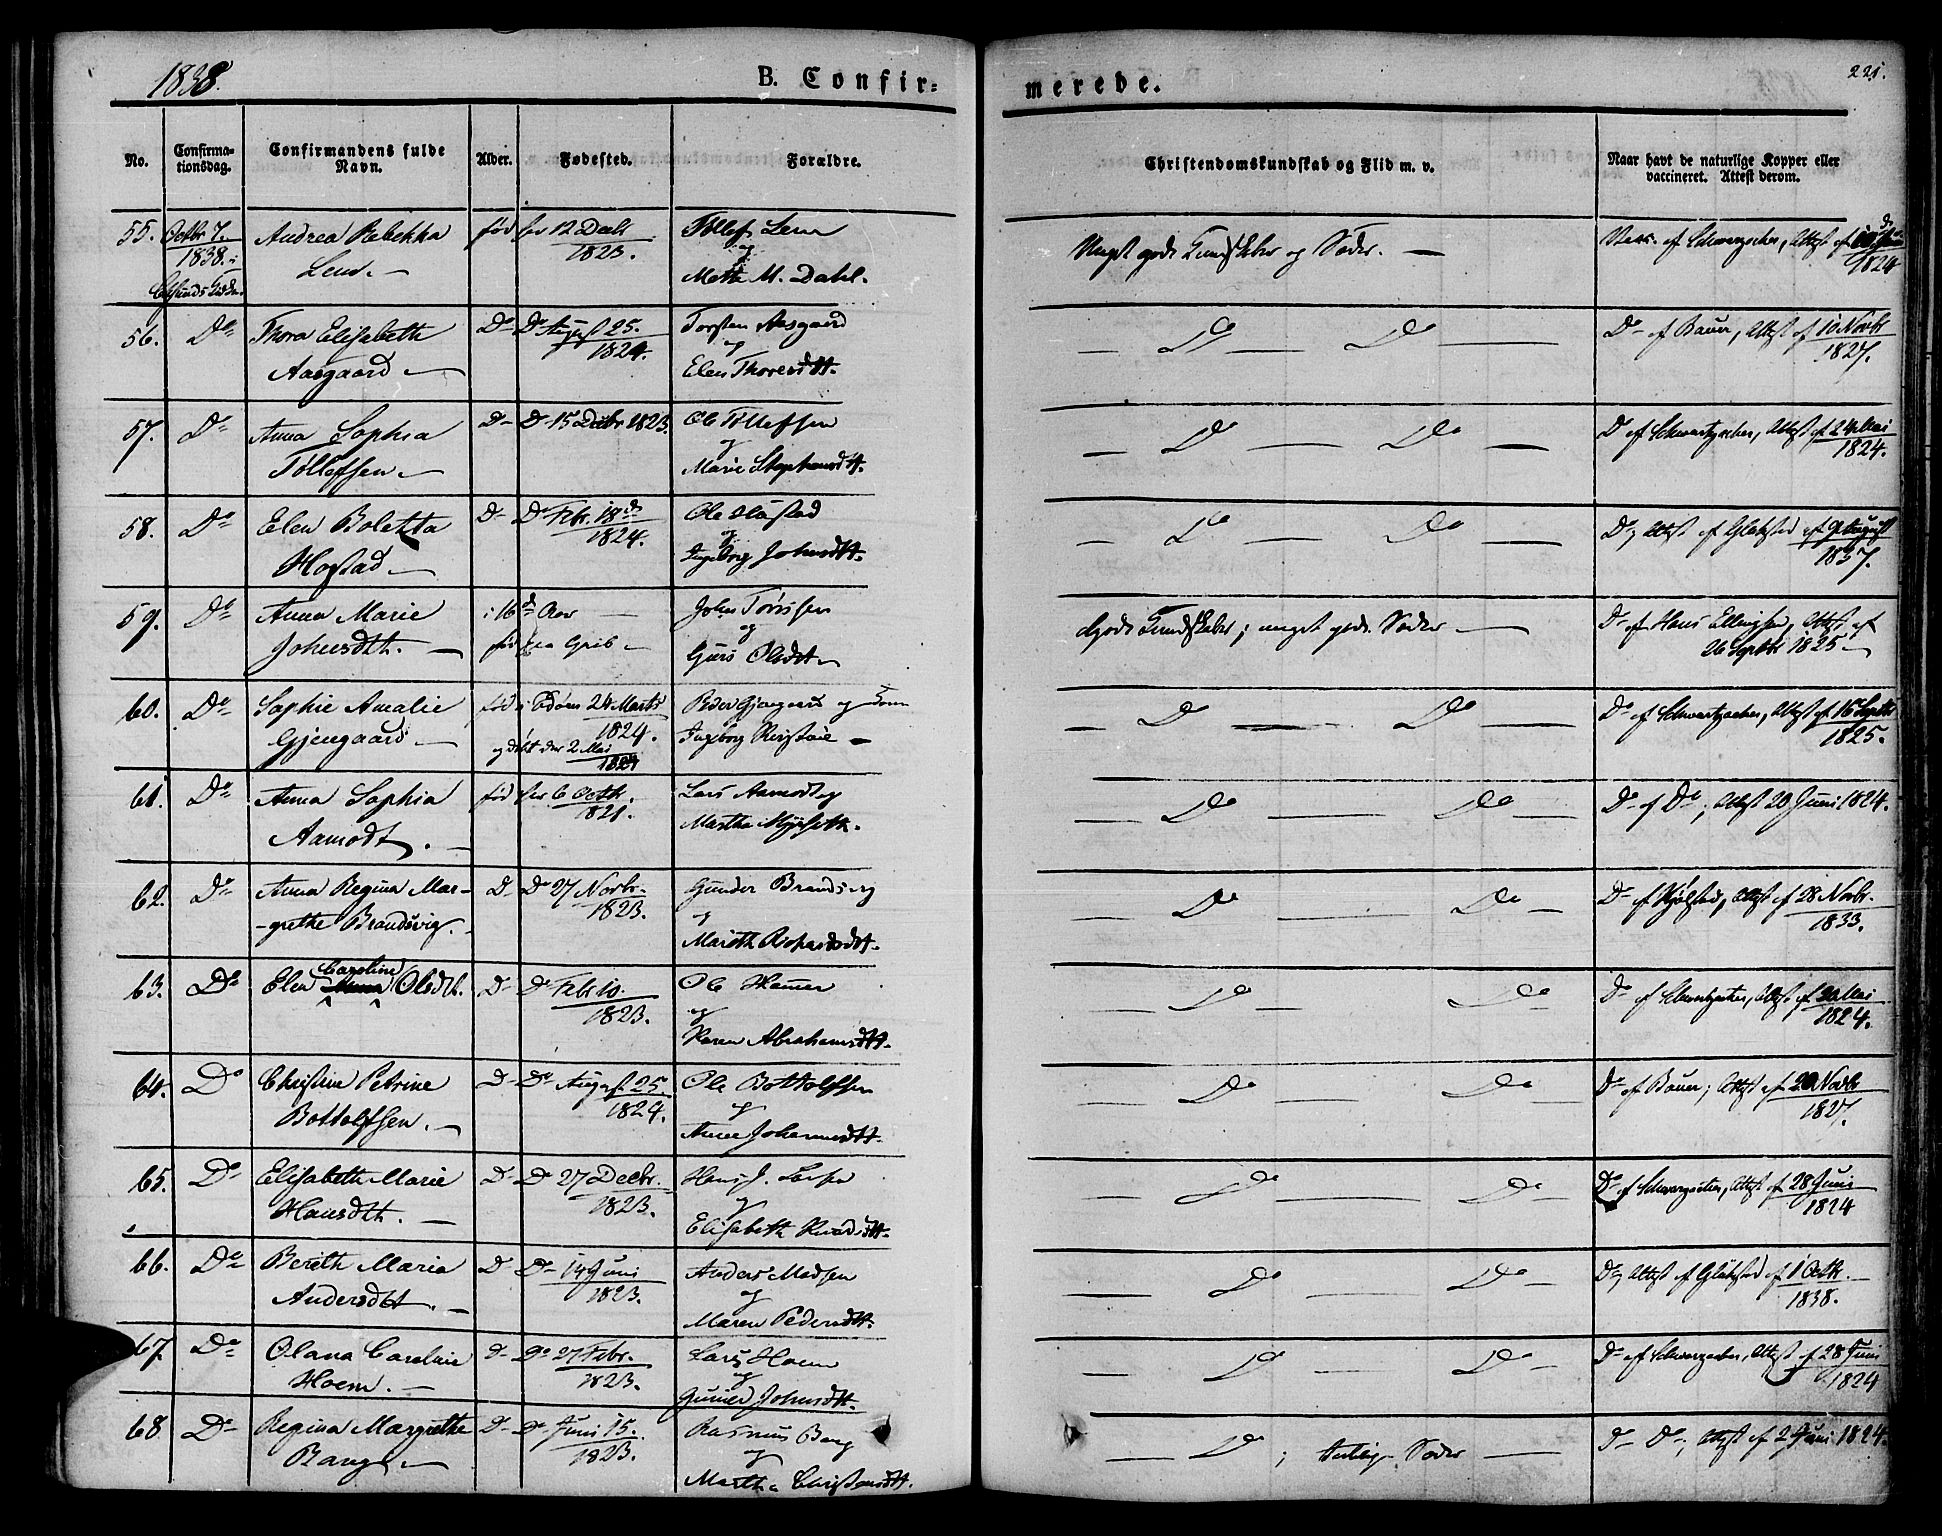 1838.
B. Confir=
merede.
221.
No.
Confirma-
tionsdag.
Confirmandens fulde
Navn.
Alder.
Fødested.
Forældre.
Christendomskundskab og Flid m. v.
Naar havt de naturlige Kopper eller
vaccineret. Attest derom.
55. Octbr 7. Andrea Rebekka fød 12 Decbr
1838. 1823.
og
Mette M. Dahl.
Meget gode Kundskaber og Sæder. —
Attest af
1824
56. Do Thora Elisabeth Do Do August 25. Torsten Aasgaard
1824. og
Aasgaard — Elen Thoresdtt.
— Do — Do —
Do af Bauer, Attest af 10 Novbr
1827.
57. Do Anna Sophia Do Do 15 Decbr 1823. Ole Tollefsen
og
Tollefsen — Marie Stephensdtt.
— Do — Do —
Attest af 24 Mai
1824.
58. Do Elen Boletta Do Do Febr. 18de Ole
1824. og
Hogstad — Ingeborg Johnsdtt.
— Do — Do —
Do, Attest af 9 August
1837.
59. Do Anna Marie i 16de Aar — John
og
Johnsdtt. — fød paa Grib — Guri Olsdtt
Gode Kundskaber; meget gode Sæder —
Do af Hans Ellingsen, Attest af
26 Septbr 1825 —
60. Do Sophie Amalie 24 Marts
1824.
Gjengaard — Ingeborg
og døbt den 2 Mai
1824
— Do — Do —
Do af Schwartzacher, Attest af 15 Septbr
1825.
61. Do Anna Sophia fød den 6 Octbr. Lars Aamodt og
1821. Marthe
Aamodt. —
— Do — Do —
Do af Do, Attest 20 Juni 1824.
62. Do Anna Regina Mar- Do Do 27 Novbr. Gunder Brandsvig
1823. og
-grethe Brandsvig. — Mareth Richardsdtt.
— Do — Do —
Attest af 28 Novbr.
1833.
Caroline
63. Do Elen Anna Olsdtt. Do Do Febr 10. Ole
1823. og
Karen Abrahamsdtt.
— Do — Do —
Attest af 20 Mai
1824.
64. Do Christine Petrine Do Do August 25. Ole Bottolfsen
1824. og
Bottolfsen. — Anne Johannesdtt.
— Do — Do —
Do af Bauer; Attest af 20 Novbr
1827.
65. Do Elisabeth Marie Do Do 27 Decbr. Hans J.
1823. og
Hansdtt. — Elisabeth Knudsdtt.
— Do — Do —
Attest af 28 Juni
1824
66. Do Bereth Maria Do Do 14 Juni Anders Madsen
1823. og
Andersdtt. — Maren Pedersdtt.
— Do — Do —
Do, Attest af 1 Octbr.
1838.
67. Do Olana Caroline Do Do 27 Febr. Lars Hoem
1823. og
Hoem. — Johnsdtt.
— Do — Do —
Attest af 28 Juni
1824
68. Do Regina Margrethe Do Do Juni 15. Rasmus Bang
1823. og
Bang — Martha Christensdtt.
— Do; Sæder —
Do Do, Attest af 2 Juni 1824.